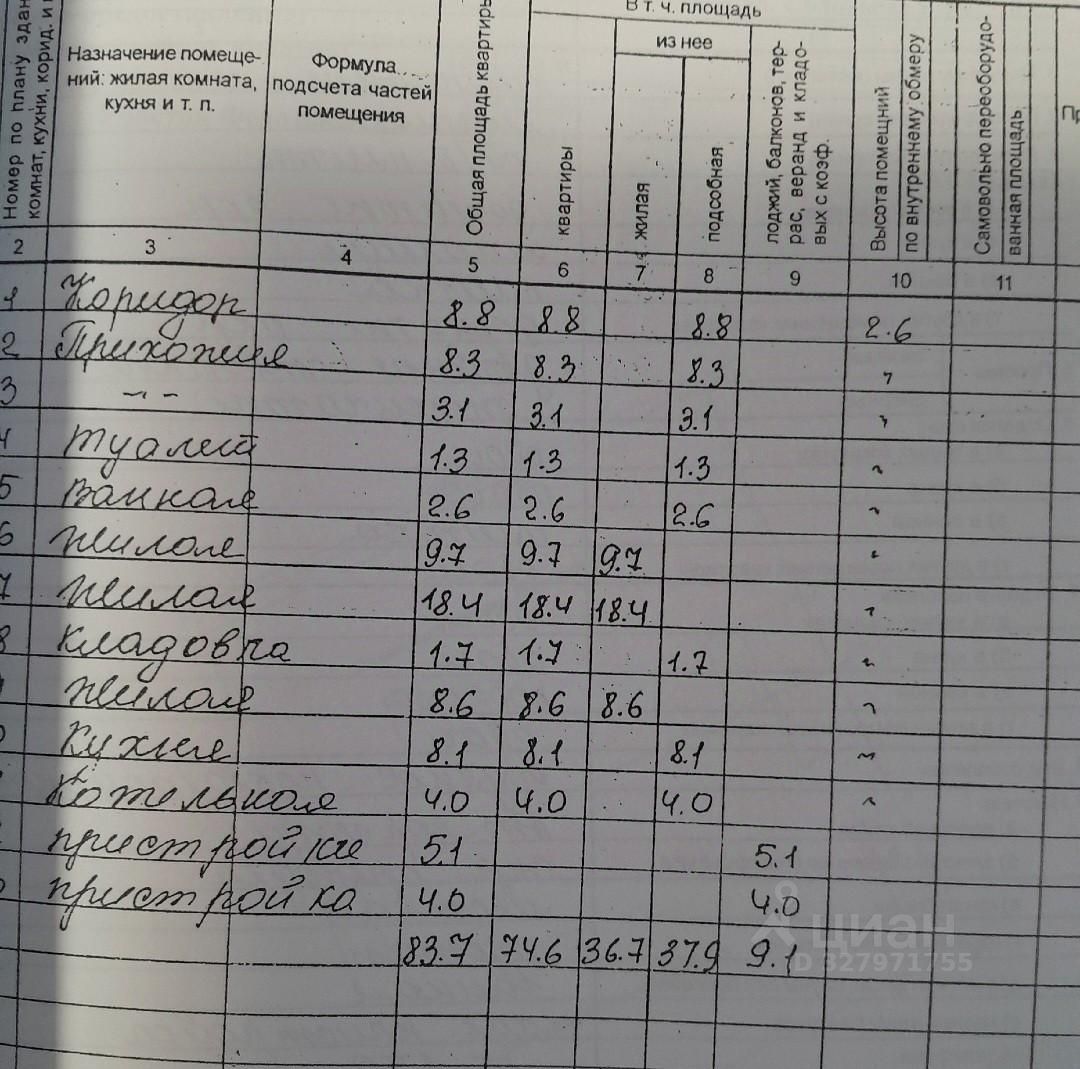 Номер по плану здан
комнат, кухни, корид. и
Назначение помеще-
ний: жилая комната,
кухня и т. п.
Формула
подсчета частей
помещения
Общая площадь квартиры
В т. ч. площадь
из нее
квартиры
жилая
подсобная
лоджий, балконов, тер-
рас, веранд и кладо-
вых с коэф.
Высота помещний
по внутреннему обмеру
Самовольно переоборудо-
ванная площадь
Пр
2 3 4 5 6 7 8 9 10 11
1 Коридор 8.8 8.8 8.8 2.6
2 Прихожая 8.3 8.3 8.3 "
3 -"- 3.1 3.1 3.1 "
4 туалет 1.3 1.3 1.3 "
5 Ванная 2.6 2.6 2.6 "
6 Жилая 9.7 9.7 9.7 "
7 Жилая 18.4 18.4 18.4 "
8 кладовка 1.7 1.7 1.7 "
Жилая 8.6 8.6 8.6 "
Кухня 8.1 8.1 8.1 "
Котельная 4.0 4.0 4.0 "
пристройка 5.1 5.1
пристройка 4.0 4.0
83.7 74.6 36.7 37.9 9.1
циан
ID 327971755